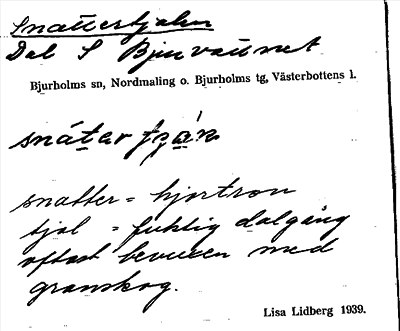 Snattertjalen
Dal S Bjurvattnet
Bjurholms sn, Nordmaling o. Bjurholms tg, Västerbottens l.
snatter = hjortron
tjal = fuktig dalgång
oftast bevuxen med
granskog.
Lisa Lidberg 1939.